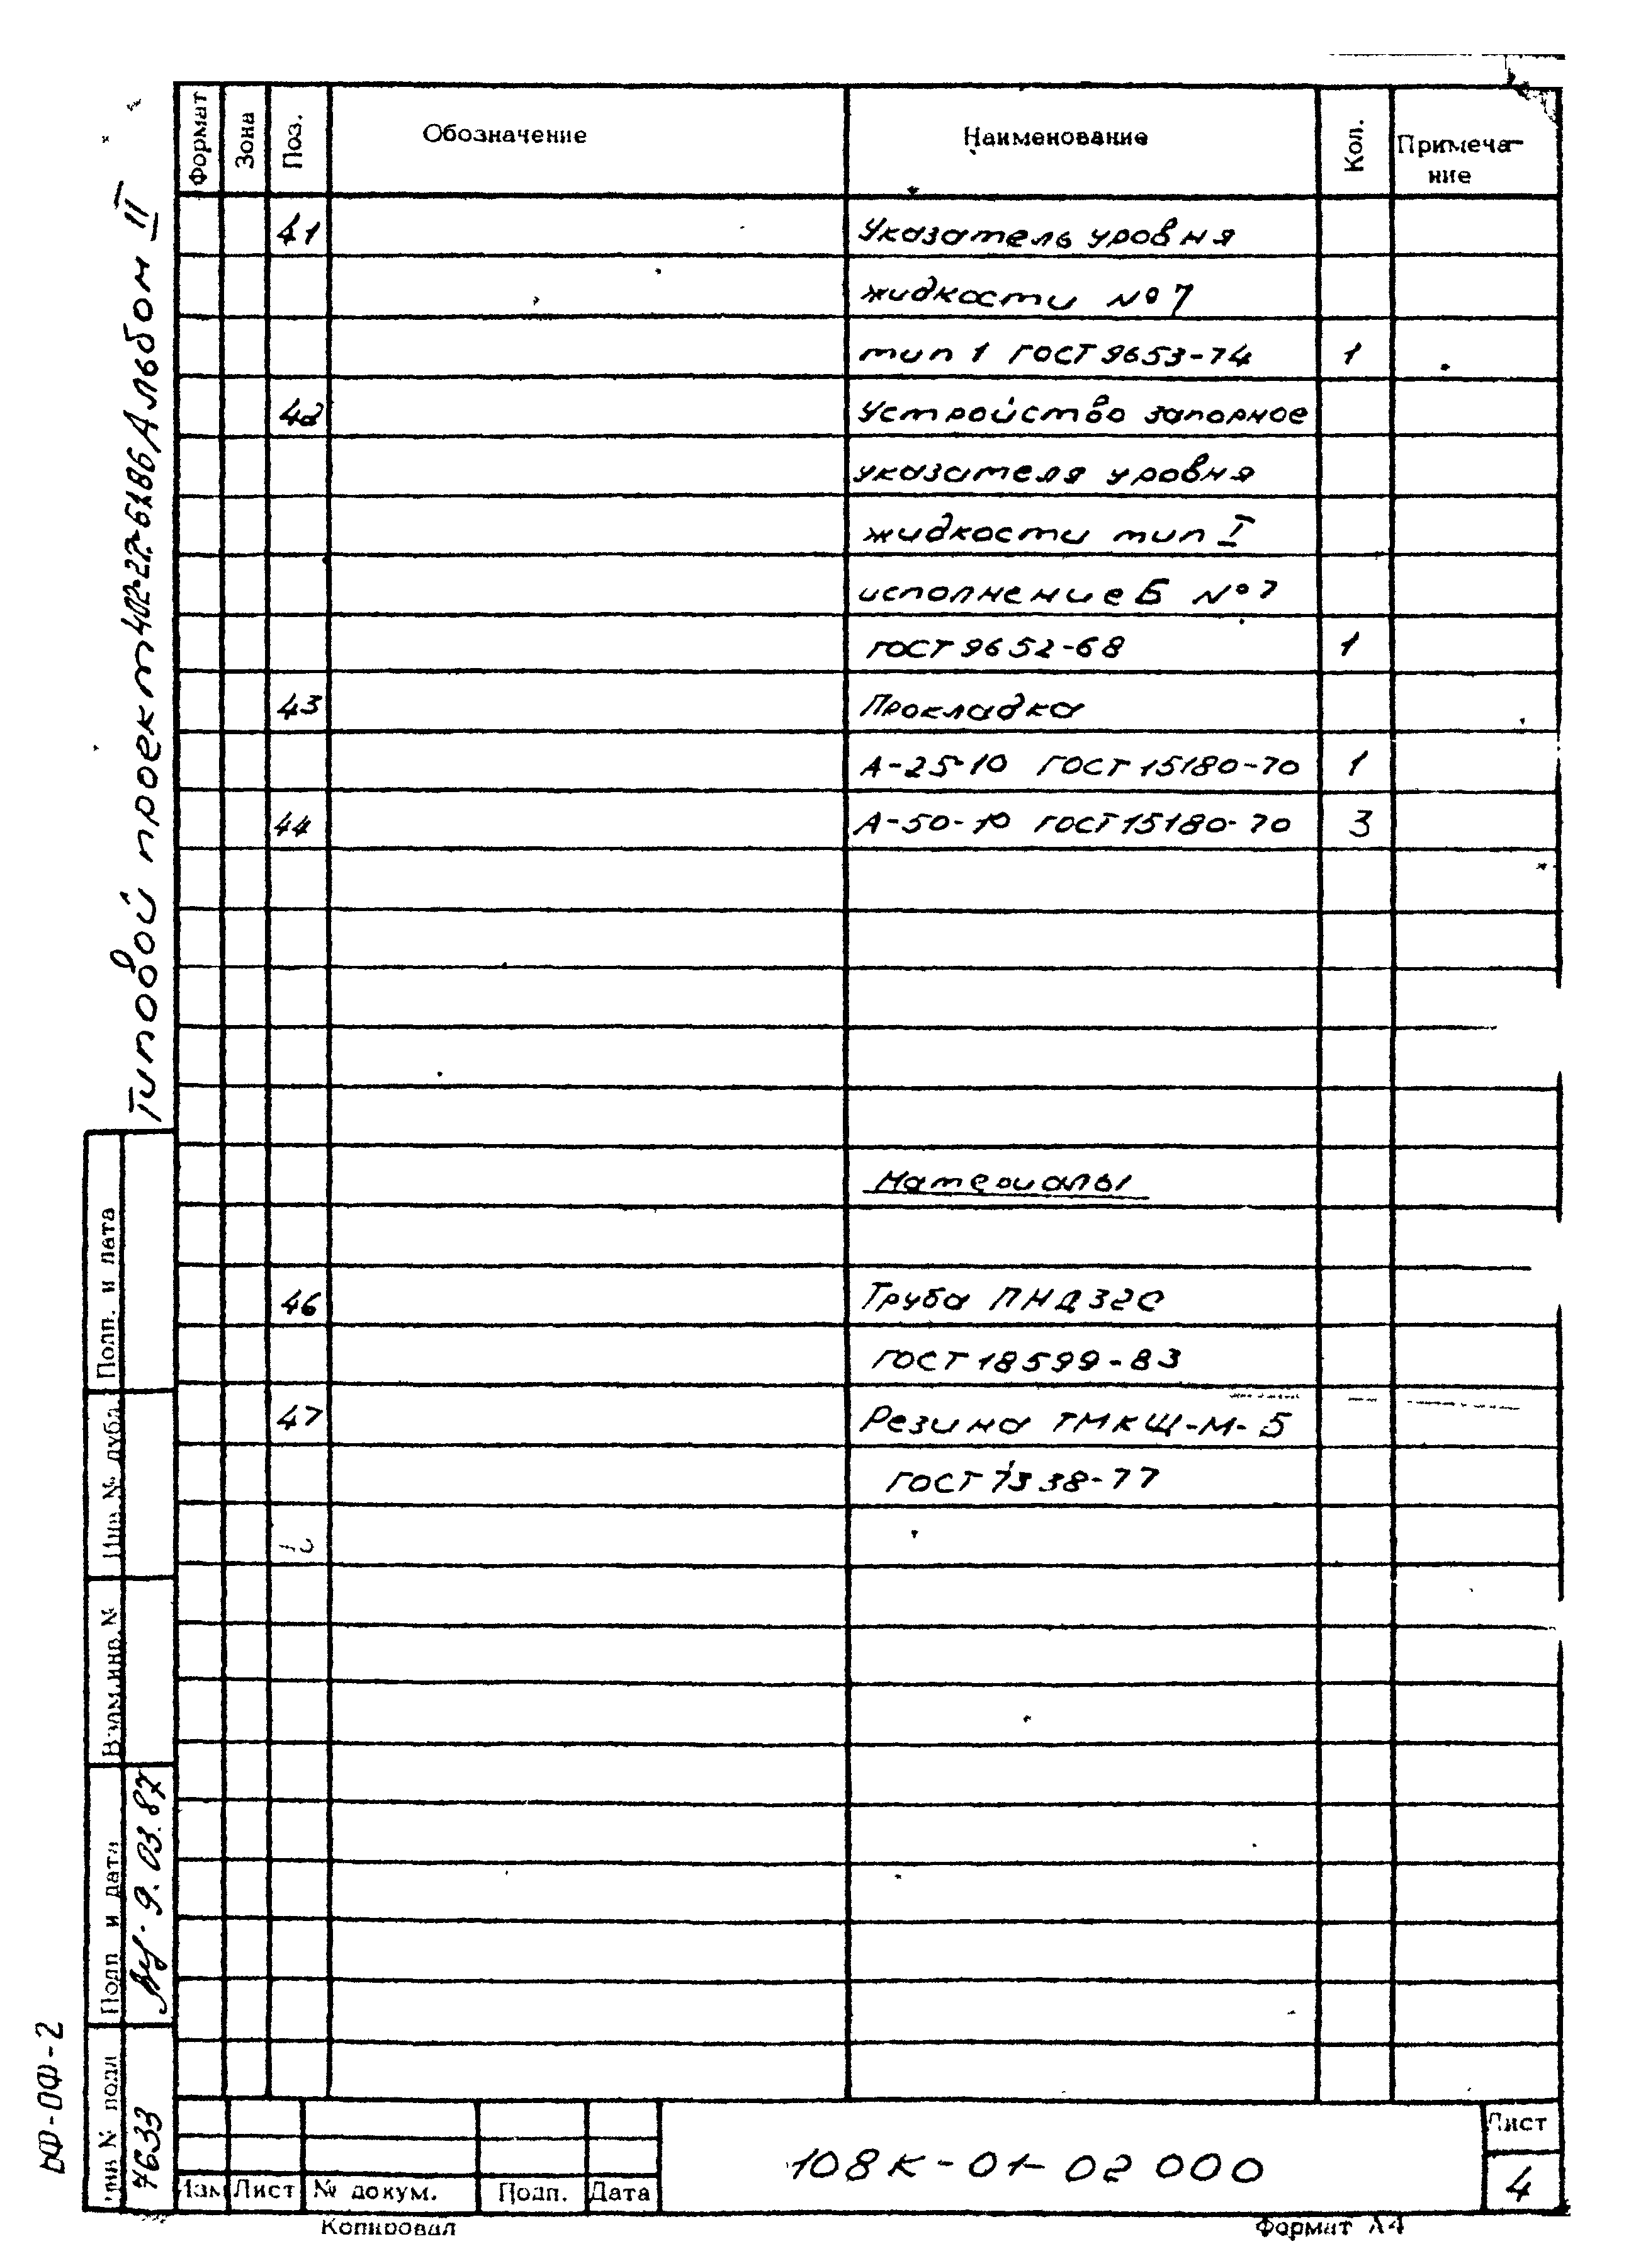 Формат Зона Поз. Обозначение Наименование Кол. Примеча-
ние
41 Указатель уровня
жидкости №7
тип 1 ГОСТ 9653-74 1
42 Устройство запорное
указателя уровня
жидкости тип I
исполнение Б №7
ГОСТ 9652-68 1
43 Прокладка
А-25-10 ГОСТ 15180-70 1
44 А-50-10 ГОСТ 15180-70 3
Материалы
46 Труба ПНД 32С
ГОСТ 18599-83
47 Резина ТМКЩ-М-5
ГОСТ 7338-77
Типовой проект 402-22-61.86, Альбом II
Подп. и дата
Инв № дубл
Взам.инв. №
Подп и дата
9.03.87
инв № подл
7633
ВФ-ОФ-2
Изм Лист № докум. Подп. Дата
108К-01-02 000
Лист
4
Копировал
Формат А4